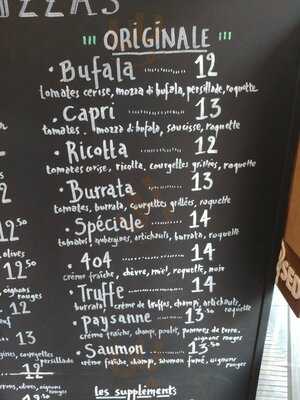 ZZAS
ORIGINALE
• Bufala ........ 12
tomates cerise, mozza di bufala, persillade, roquette
• Capri ........ 13
tomates, mozza di bufala, saucisse, roquette
• Ricotta ........ 12
tomates cerise, ricotta, courgettes grillées, roquette
• Burrata ........ 13
tomates, burrata, courgettes grillées, roquette
• Spéciale ........ 14
tomates, aubergines, artichauts, burrata, roquette
• 404 ........ 14
crème fraîche, chèvre, miel, roquette, noix
• Truffe ........ 14
burrata, crème de truffes, champi, artichauts, roquette
• Paysanne ........ 13.50
crème fraîche, champi, poulet, pommes de terre, oignons rouges
• Saumon ........ 13.50
crème fraîche, champi, saumon fumé, oignons rouges
les suppléments
12.50
olives
12.50
oignons rouges
12
13
courgettes
12.50
persillade
olives, oignons rouges
12.50